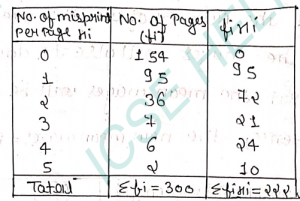 No. of misprint per page xi | No. of Pages (fi) | fixi
0 | 154 | 0
1 | 95 | 95
2 | 36 | 72
3 | 7 | 21
4 | 6 | 24
5 | 2 | 10
Total | Σfi = 300 | Σfixi = 222
ICSE HELP